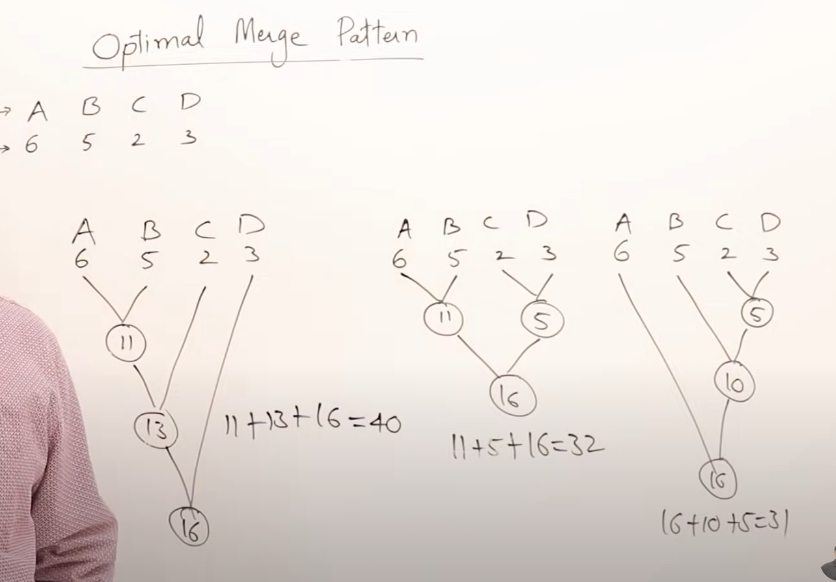 Optimal Merge Pattern
→ A B C D
→ 6 5 2 3
A B C D
6 5 2 3
11
13
16
11+13+16=40
A B C D
6 5 2 3
11 5
16
11+5+16=32
A B C D
6 5 2 3
5
10
16
16+10+5=31